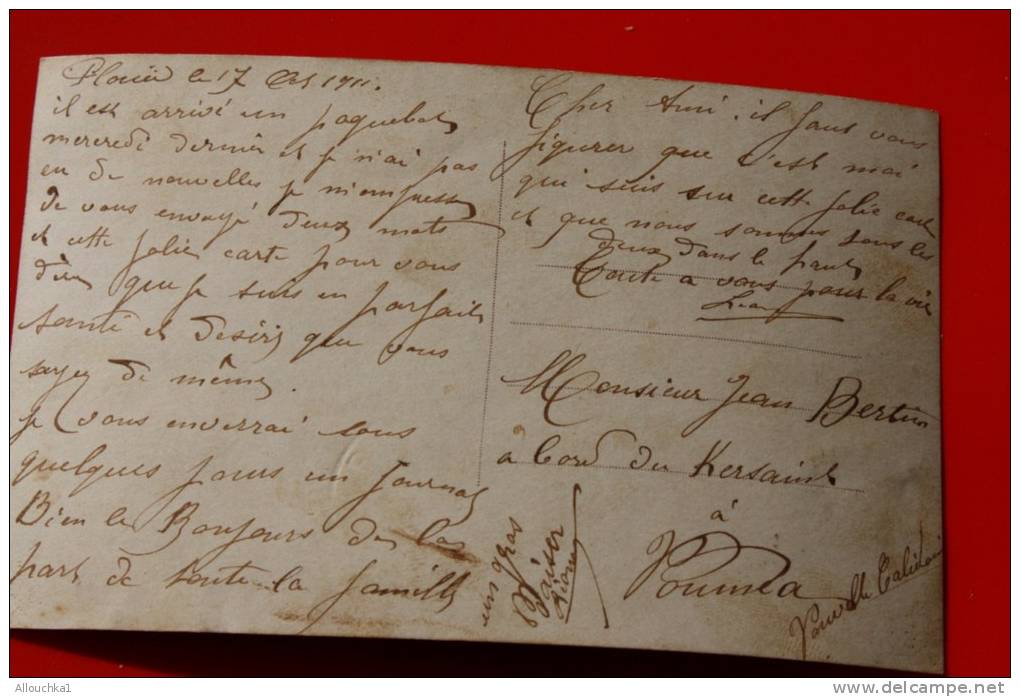 le 17 1911.
il est arrivé un paquebot
mercredi dernier et je n'ai pas
eu de nouvelles je m'empresse
de vous envoyé deux mots
et cette jolie carte pour vous
dire que je suis en parfaite
santé et désire que vous
soyez de même.
je vous enverrai sous
quelques jours un journal
Bien le Bonjours de la
part de toute la famille
Cher Ami, il faut vous
figurer que c'est moi
qui suis sur cette jolie carte
et que nous sommes tous les
deux dans le
Toute a vous pour la vie
un gros
Baiser
Monsieur Jean Bertin
a bord du Kersaint
à
Nouméa
Nouvelle Calédonie
Allouchka1
www.delcampe.net